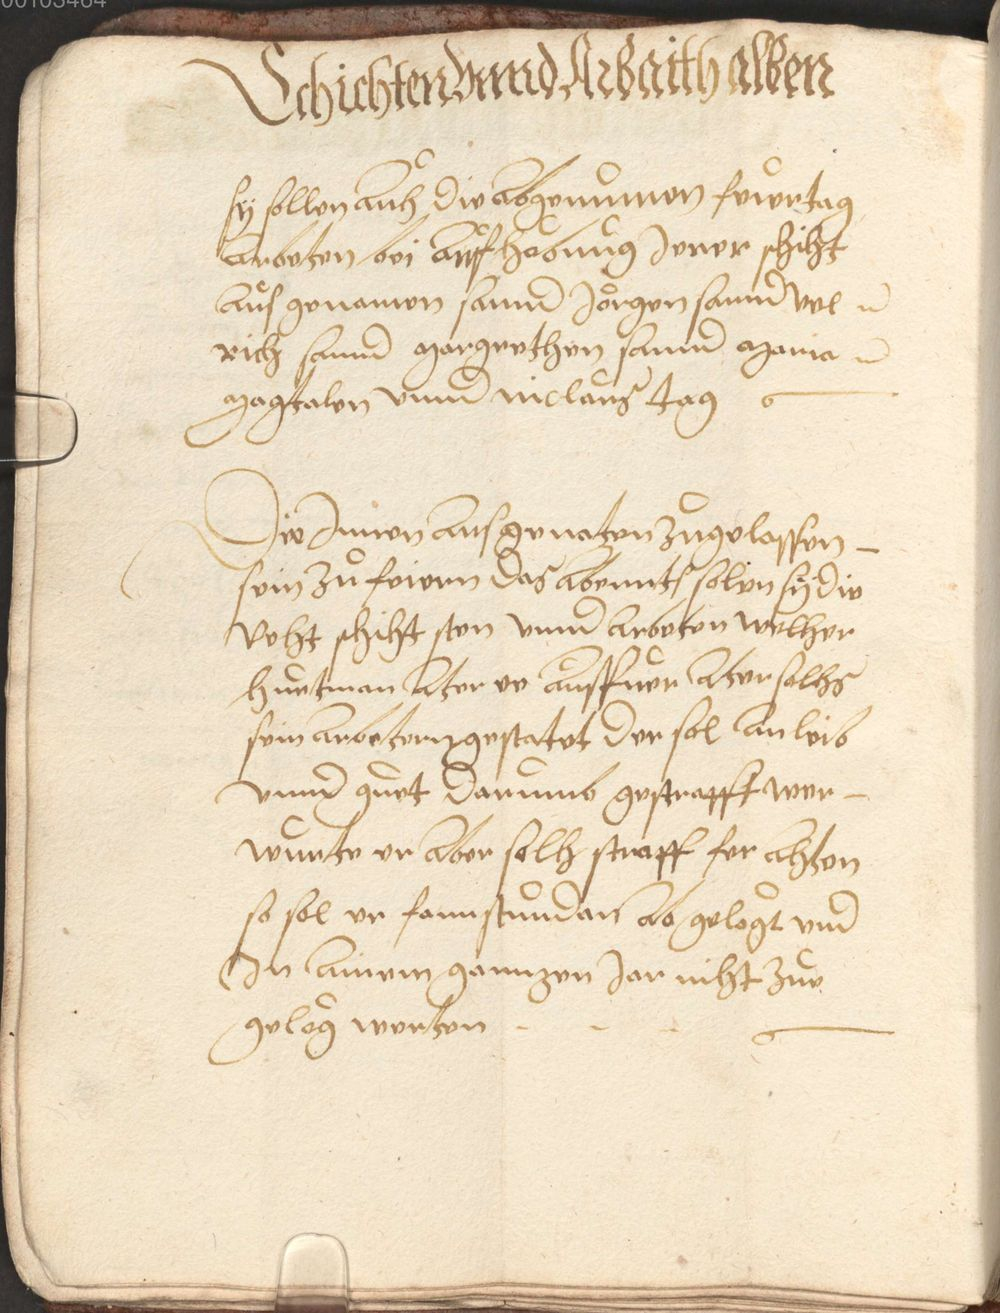 00103464
Schichten Vnnd Arbaith alben
sÿ sollen auch die abgenumen feiertag
arbeten bei auffhebung Jener schicht
aus genamen sannd Jörgen sannd Vel
rich sannd margrethen sannd maria
magtalen vnnd niclaus tag
Die Jnnen ausgenaten zugelassen
sein zu feiern das abennts solen sÿ die
Recht schicht sten vnnd arbeten welcher
huetman ater er auffuer ater solchs
sein arbetern gestatet der sol an leib
vnnd guet darumb gestrafft wer
wurte er aber solch straff fer achten
so sol er fannstundan ab gelegt vnd
Jn ainem gannzen Jar nicht zue
geleg werten